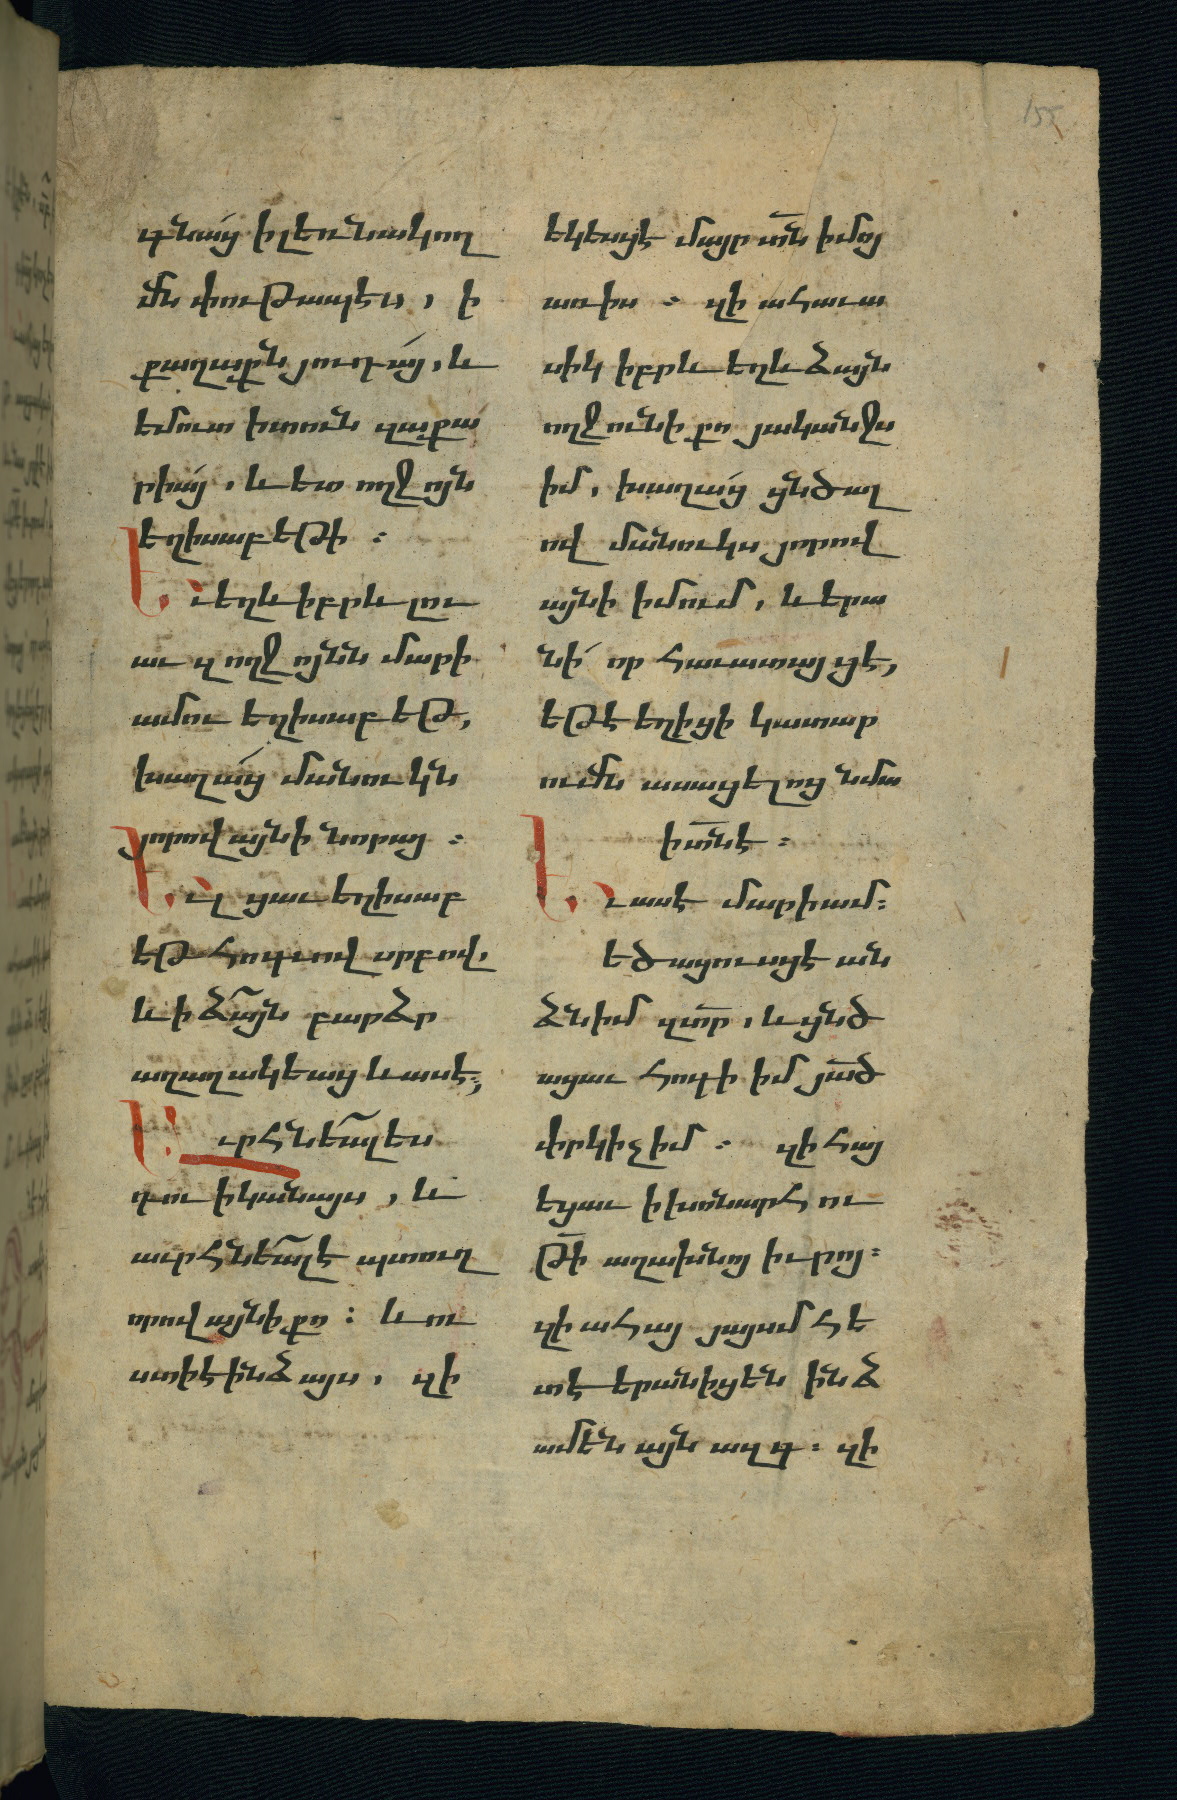 գնա՛ց ի լեռնակող
մն փութապէս, ի
քաղաքն յուդա՛յ, և
եմուտ ի տուն զաքա
րիա՛յ, և ետ ողջոյն
եղիսաբեթի ։
Եւ եղև իբրև լու
աւ զողջոյնն մարի
ամու եղիսաբեթ,
խաղա՛ց մանուկն
յորովայնի նորայ ։
Եւ լցաւ եղիսաբ
եթ հոգւով սրբով,
և ի ձայն բարձր
աղաղակեաց և ասէ։,
Աւրհնեալ ես
դու ի կանայս, և
աւրհնեալ է պտուղ
որովայնի քո ։ և ու
ստի է ինձ այս, զի
եկեսցէ մայր տն իմոյ
առ իս ։ զի ահաւա
սիկ իբրև եղև ձայն
ողջունի քո յականջս
իմ, խաղա՛ց ցնծաղ
ով մանուկս յորով
այնի իմում, և երա
նի՛ որ հաւատայցէ,
եթէ եղիցի կատար
ումն ասացելոց նմա
ի տնէ ։
Եւ ասէ մարիամ։
եծացուսցէ ան
ձն իմ զտր, և ցնծ
ացաւ հոգի իմ յած
փրկիչ իմ ։ զի հայ
եցաւ ի խոնարհ ու
թի աղախնոյ իւրոյ։
զի ահայ յայսմ հե
տէ երանիցեն ինձ
ամեն այն ազգ ։ զի
155